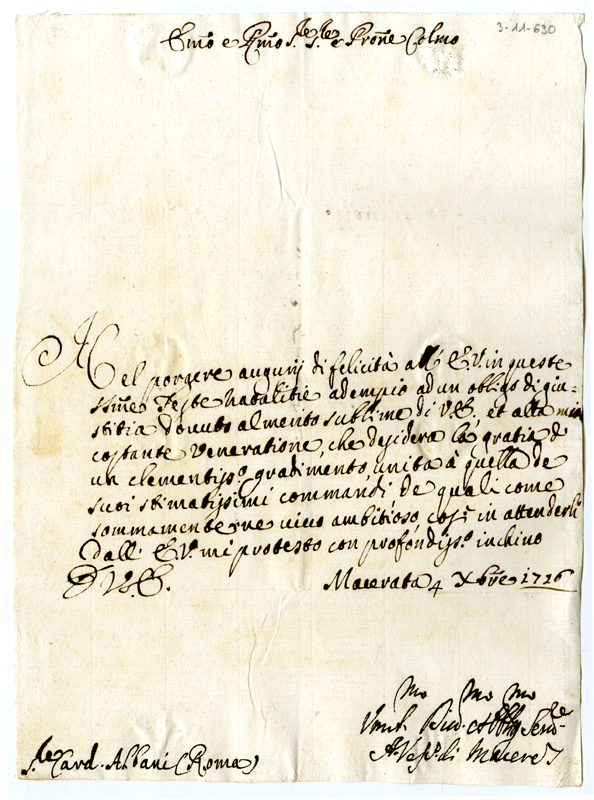 3-11-630
Emo e Rmo S.re S.re e Prone Colmo
Nel porgere augurij di felicità all' E.V. in queste
ssme Feste natalitie adempio ad un obligo di giu-
stitia douuto al merito sublime di V.E. et alla mia
costante veneratione, che desidera la gratia d
un clementiss.o gradimento unita à quella de
suoi stimatissimi commandi de quali come
sommamente ne viuo ambitioso, così in attenderli
dall' E.V. mi protesto con profondiss.o inchino
D V.E. Macerata 4 Xbre 1716
mo mo mo
Vmil. Diu. Obblig. Serd.re
A. Vesc. di Macera
S.re Card. Albani (Roma)